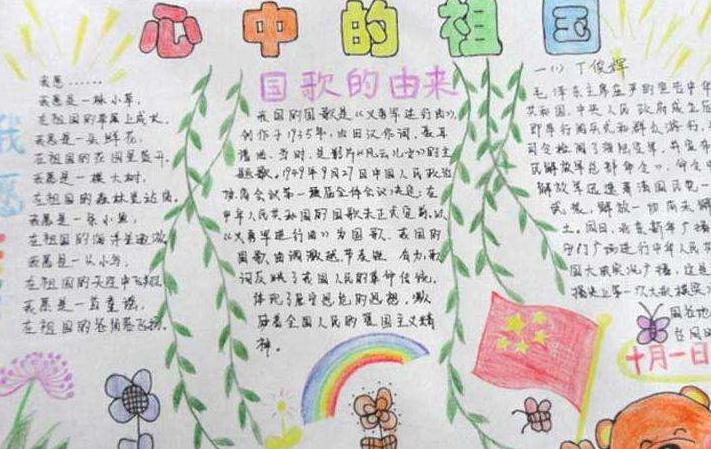 心中的祖国
一(1)丁俊辉
我愿
我愿……
我愿是一株小草,
在祖国的草原上成长。
我愿是一朵鲜花,
在祖国的花园里盛开。
我愿是一棵大树,
在祖国的森林里站岗。
我愿是一条小鱼,
在祖国的海洋里遨游。
我愿是一只小鸟,
在祖国的天空中飞翔。
我愿是一首童谣,
在祖国的爸爸巷飞扬。
国歌的由来
我国的国歌是《义勇军进行曲》,
创作于1935年,由田汉作词,聂耳
谱曲,当时,是影片《风云儿女》的主
题歌。1949年9月27日中国人民政治
协商会议第一届全体会议决定:在
中华人民共和国的国歌未正式定前,以
《义勇军进行曲》为国歌。我国的
国歌曲调激越,节奏
词反映了我国人民的革命传统,
体现了居安思危的思想,激
励着全国人民的爱国主义精
神。
毛泽东主席庄严的宣告中华
共和国,中央人民政府成立
即举行阅兵式和群众游行。
司令检阅了
民解放军总部命令》,命令中
解放军迅速肃清国民党一
武装,解放一切尚未解
土。同日,北京新华广播
安门广场进行中华人民共
国大典实况广播,这是
播史上第一次大规模实
国各地
在同日
十月一日